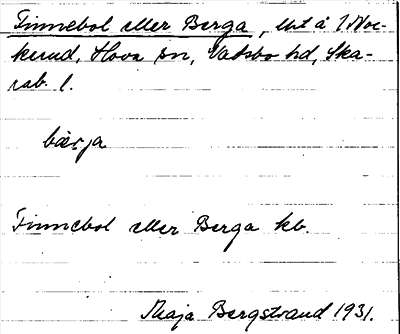 Finnebol eller Berga, lht å 1 Moc-
kerud, Hova sn, Vadsbo hd, Ska-
rab. l.
bærja
Finnebol eller Berga kb.
Maja Bergstrand 1931.